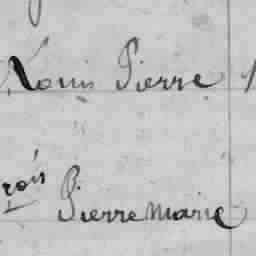 Louis Pierre
rois
Pierre Marie